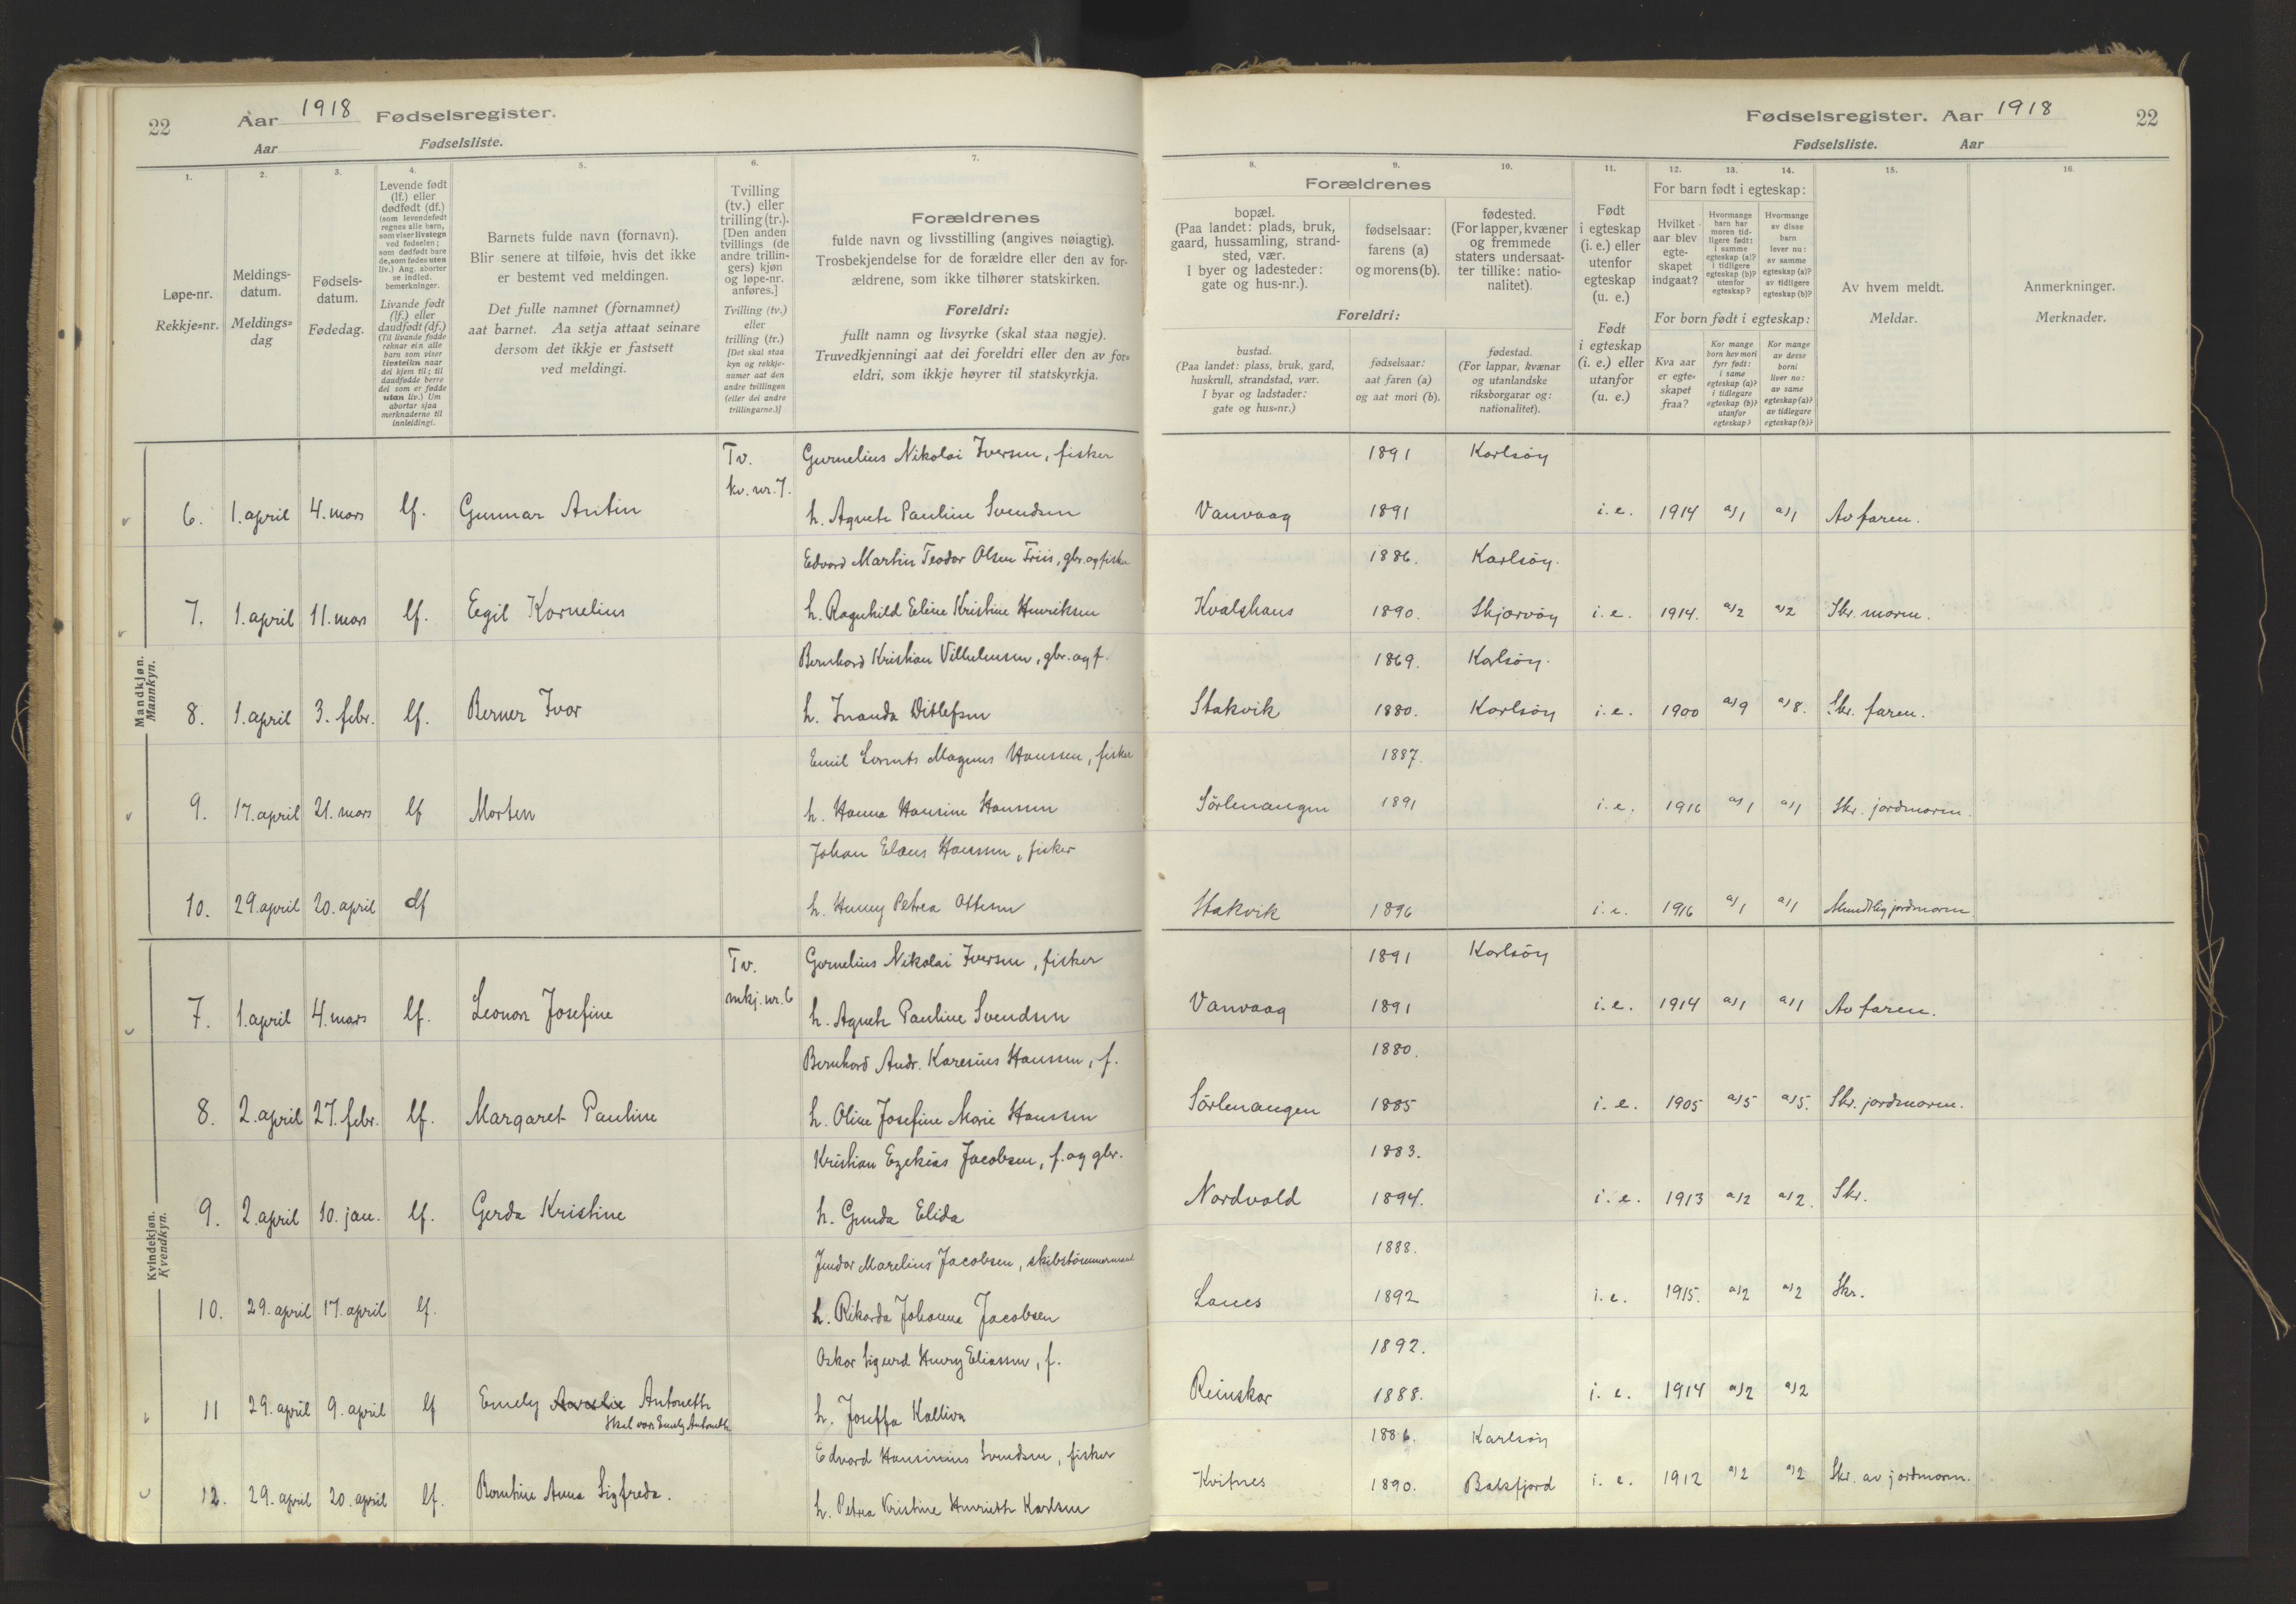 22 Aar 1918 Fødselsregister.
Aar Fødselsliste.
1. 2. 3. 4. 5. 6. 7.
Løpe-nr.
Rekkje=nr.
Meldings-
datum.
Meldings=
dag
Fødsels-
datum.
Fødedag.
Levende født
(lf.) eller
dødfødt (df.)
(som levendefødt
regnes alle barn,
som viser livstegn
ved fødselen;
som dødfødt bare
de, som fødes uten
liv.) Ang. aborter
se indled.
bemerkninger.
Livande født
(lf.) eller
daudfødt (df.)
(Til livande fødde
reknar ein alle
barn som viser
livsteikn naar
dei kjem til; til
daudfødde berre
dei som er fødde
utan liv.) Um
abortar sjaa
merknaderne til
innleidingi.
Barnets fulde navn (fornavn).
Blir senere at tilføie, hvis det ikke
er bestemt ved meldingen.
Det fulle namnet (fornamnet)
aat barnet. Aa setja attaat seinare
dersom det ikkje er fastsett
ved meldingi.
Tvilling
(tv.) eller
trilling (tr.).
[Den anden
tvillings (de
andre trillin-
gers) kjøn
og løpe-nr.
anføres.]
Tvilling (tv.)
eller
trilling (tr.)
[Det skal staa
kyn og rekkje-
numer aat den
andre tvillingen
(eller dei andre
trillingarne.)]
Forældrenes
fulde navn og livsstilling (angives nøiagtig).
Trosbekjendelse for de forældre eller den av for-
ældrene, som ikke tilhører statskirken.
Foreldri:
fullt namn og livsyrke (skal staa nøgje).
Truvedkjenningi aat dei foreldri eller den av for=
eldri, som ikkje høyrer til statskyrkja.
Mandkjøn.
Mannkyn.
Tv. Gurnelius Nikolai Iversen, fisker
kv. nr. 7.
6. 1. april 4. mars lf. Gunnar Antin h. Agnete Pauline Svendsen
Edvard Martin Teodor Olsen Friis, gbr. og fisker
7. 1. april 11. mars lf. Egil Kornelius h. Ragnhild Eline Kristine Henriksen
Bernhard Kristian Vilhelmsen, gbr. og f.
8. 1. april 3. febr. lf. Berner Ivar h. Inanda Ditlefsen
Emil Lornts Magnus Hansen, fisker
9. 17. april 21. mars lf Morten h. Hanna Hansine Hansen
Johan Elæus Hansen, fisker
10. 29. april 20. april df h. Henny Petrea Ottesen
Kvindekjøn.
Kvendkyn.
Tv. Gornelius Nikolai Iversen, fisker
mkj. nr. 6
7. 1. april 4. mars lf. Leonor Josefine h. Agnete Pauline Svendsen
Bernhard Andr. Karesius Hansen, f.
8. 2. april 27. febr. lf. Margaret Pauline h. Oline Josefine Marie Hansen
Kristian Ezekias Jacobsen, f. og gbr.
9. 2. april 10. jan. lf. Gerda Kristine h. Gunda Elida
Jindar Marelius Jacobsen, skibstömmermand
10. 29. april 17. april lf. h. Rikarda Johanne Jacobsen
Oskar Sigurd Henry Eliassen, f.
11 29. april 9. april lf Emely Antoneth h. Joseffa
Skal være Emely Antoneth
Edvard Hansinius Svendsen, fisker
12. 29. april 20. april lf. Berntine Anna Sigfreda. h. Petrea Kristine Henrieth Karlsen
Fødselsregister. Aar 1918 22
Fødselsliste. Aar
8. 9. 10. 11. 12. 13. 14. 15. 16.
Forældrenes
bopæl.
(Paa landet: plads, bruk,
gaard, hussamling, strand-
sted, vær.
I byer og ladesteder:
gate og hus-nr.).
fødselsaar:
farens (a)
og morens (b).
fødested.
(For lapper, kvæner
og fremmede
staters undersaat-
ter tillike: natio-
nalitet).
Foreldri:
bustad.
(Paa landet: plass, bruk, gard,
huskrull, strandstad, vær.
I byar og ladstader:
gate og hus=nr.)
fødselsaar:
aat faren (a)
og aat mori (b).
fødestad.
(For lappar, kvænar
og utanlandske
riksborgarar og:
nationalitet).
Født
i egteskap
(i. e.) eller
utenfor
egteskap
(u. e.)
Født
i egteskap
(i. e.) eller
utanfor
(u. e.)
For barn født i egteskap:
Hvilket
aar blev
egte-
skapet
indgaat?
Hvormange
barn har
moren tid-
ligere født:
i samme
egteskap (a)?
i tidligere
egteskap (b)?
utenfor
egteskap?
Hvormange
av disse
barn
lever nu:
av samme
egteskap (a)?
av tidligere
egteskap (b)?
For born født i egteskap:
Kva aar
er egte-
skapet
fraa?
Kor mange
born hev mori
fyrr født:
i same
egteskap (a)?
i tidlegare
egteskap (b)?
utanfor
egteskap?
Kor mange
av desse
borni
liver no:
av same
egteskap (a)?
av tidlegare
egteskap (b)?
Av hvem meldt.
Meldar.
Anmerkninger.
Merknader.
1891 Karlsöy
Vanvaag 1891 i. e. 1914 a/1 a/1 Av faren.
1886. Karlsöy.
Kvalshaus 1890. Skjærvöy i. e. 1914. a/2 a/2 Skr. moren.
1869. Karlsöy.
Stakvik 1880. Karlsöy i. e. 1900 a/9 a/8. Skr. faren.
1887.
Sörlenangen 1891 i. e. 1916 a/1 a/1 Skr. jordmoren.
Stakvik 1896 i. e. 1916 a/1 a/1 Mundtlig jordmoren
1891 Karlsöy
Vanvaag 1891 i. e. 1914 a/1 a/1 Av faren.
1880.
Sörlenangen 1885 i. e. 1905 a/5 a/5. Skr. jordmoren.
1883.
Nordvold 1894. i. e. 1913 a/2 a/2. Skr.
1888.
Lanes 1892 i. e. 1915. a/2 a/2 Skr.
1892.
Reinskar 1888. i. e. 1914 a/2 a/2
1886. Karlsöy
Kvitnes 1890. Balsfjord i. e. 1912 a/2 a/2 Skr. av jordmoren.